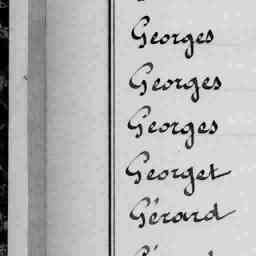 Georges
Georges
Georges
Georget
Gérard